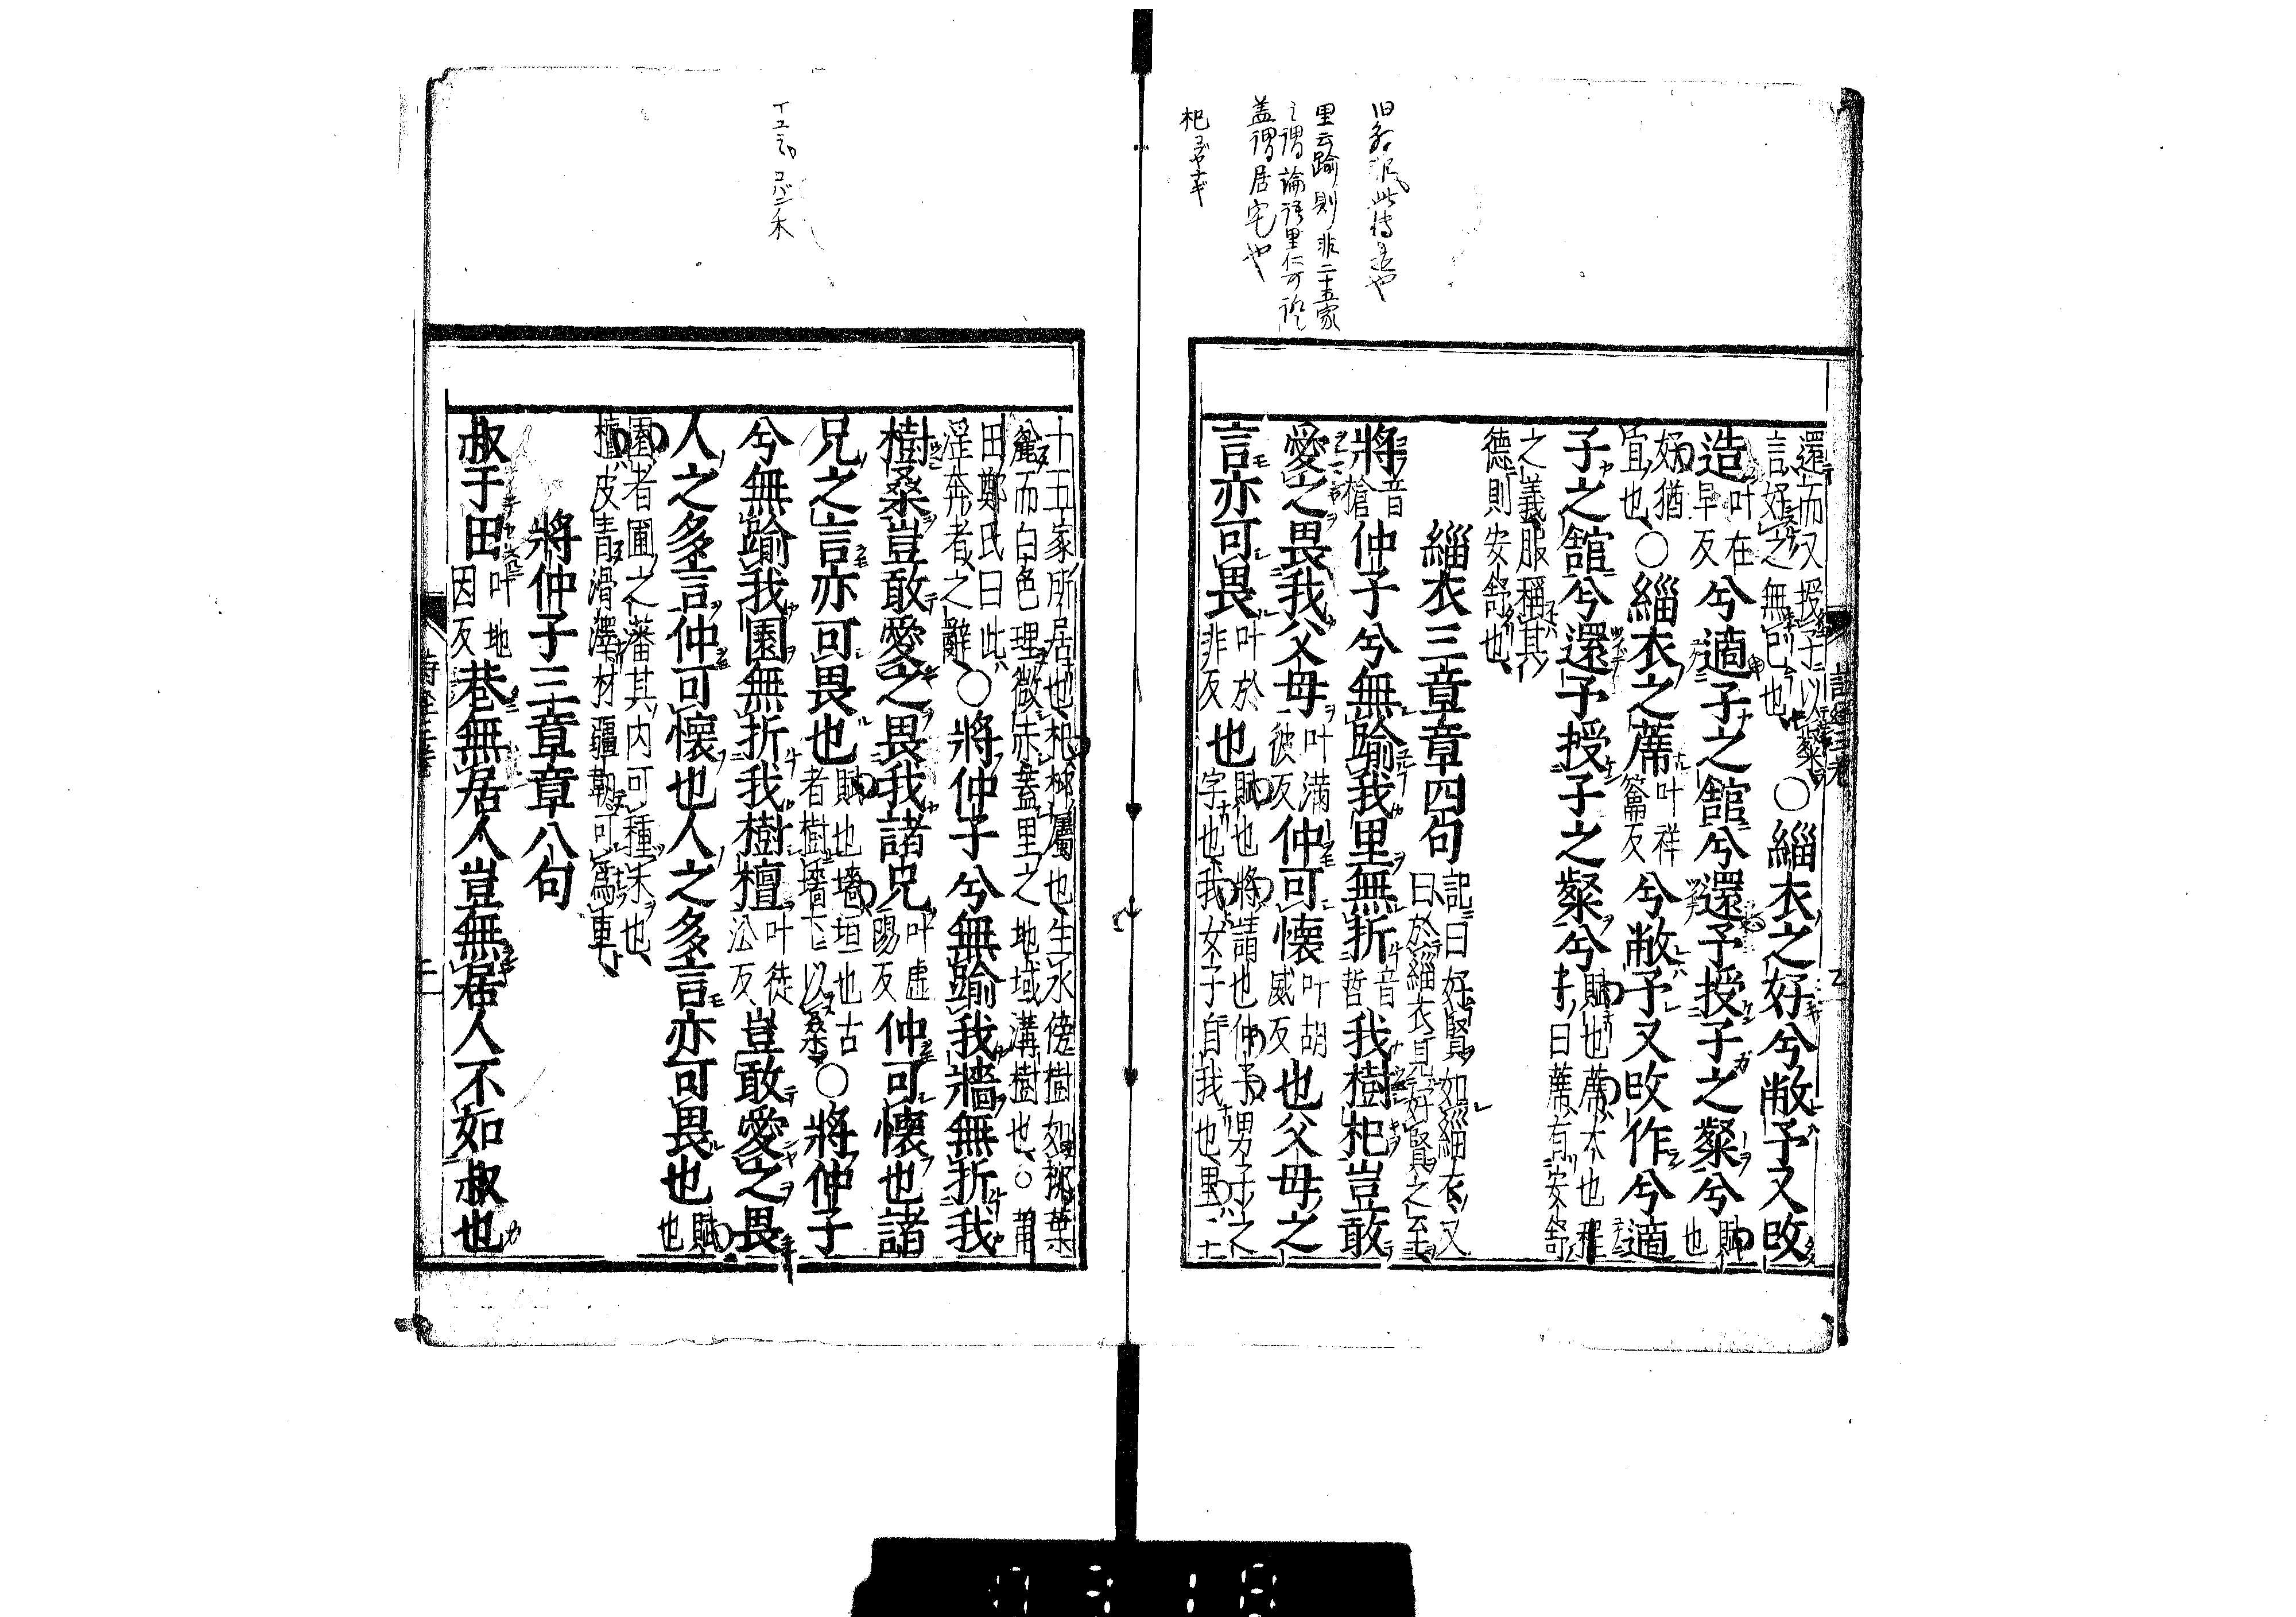 里云踰則非二十五家
之謂論語里仁可證
蓋謂居宅也
杞コブヤナギ
還而又授子以粲○緇衣之好兮敝予又改
言好之無已也
造叶在早反兮適子之館兮還予授子之粲兮賦也
好猶宜也○緇衣之蓆叶祥籥反兮敝予又改作兮適
子之館兮還予授子之粲兮賦也蓆大也程子曰蓆有安舒
之義服稱其德則安舒也
緇衣三章章四句記曰好賢如緇衣又曰於緇衣見好賢之至
將音槍仲子兮無踰我里無折音哲我樹杞豈敢
愛之畏我父母叶滿彼反仲可懷叶胡威反也父母之
言亦可畏叶於非反也賦也將請也仲子男子之字也我女子自我也里二
十五家所居也杞柳屬也生水傍樹如柳葉
麄而白色理微赤蓋里之地域溝樹也○莆
田鄭氏曰此淫奔者之辭○將仲子兮無踰我牆無折我
樹桑豈敢愛之畏我諸兄叶虛陽反仲可懷也諸
兄之言亦可畏也賦也墻垣也古者樹墻下以桑○將仲子
兮無踰我園無折我樹檀叶徒沿反豈敢愛之畏
人之多言仲可懷也人之多言亦可畏也賦也
園者圃之藩其內可種木也
檀皮青滑澤材疆韌可爲車
將仲子三章章八句
叔于田叶地因反巷無居人豈無居人不如叔也